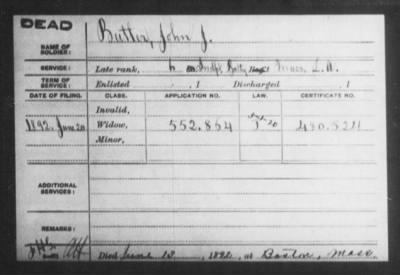 DEAD
NAME OF SOLDIER: Butler, John J.
SERVICE: Late rank, Mass. L.A.
TERM OF SERVICE: Enlisted , 1 Discharged , 1
DATE OF FILING. CLASS. APPLICATION NO. LAW. CERTIFICATE NO.
Invalid,
1892. June 20 Widow, 552.864
Minor,
ADDITIONAL SERVICES:
REMARKS:
Died June 12, 1892, at Boston, Mass.